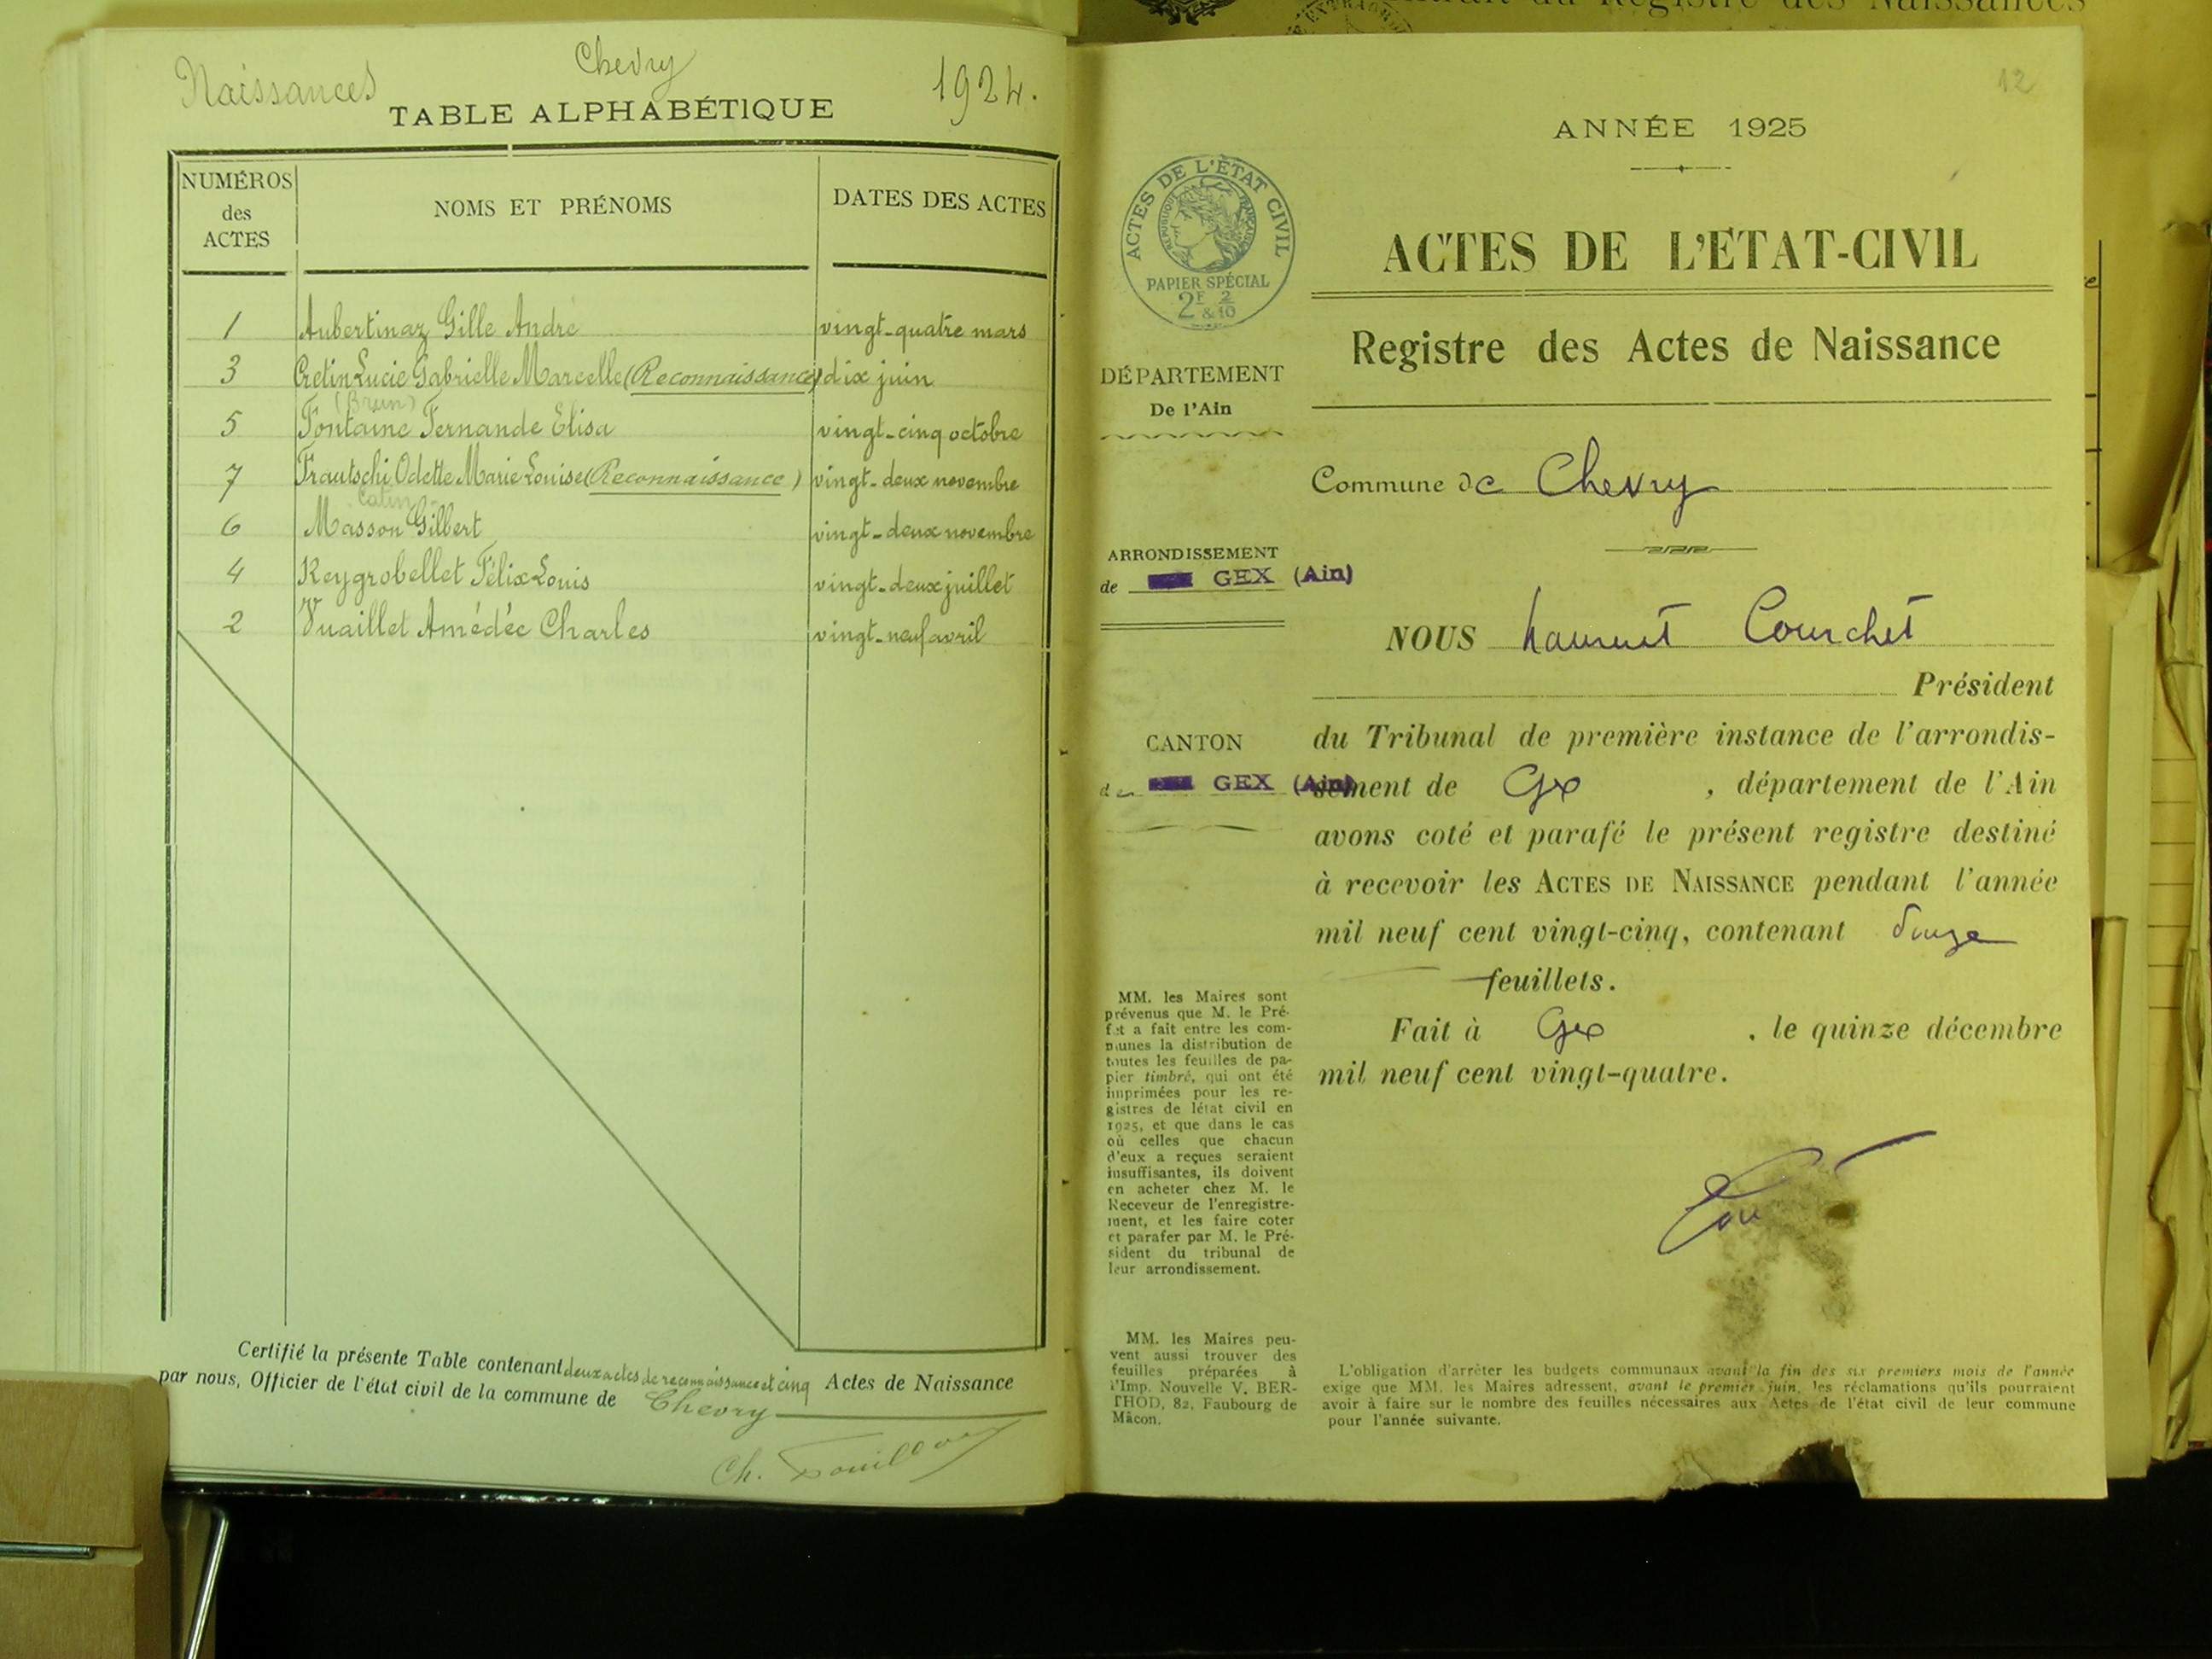 Naissances
Chevry
1924.
TABLE ALPHABÉTIQUE
NUMÉROS
des
ACTES
NOMS ET PRÉNOMS
DATES DES ACTES
1 Aubertinaz Gille André vingt-quatre mars
3 Cretin Lucie Gabrielle Marcelle (Reconnaissance) dix juin
(Brun)
5 Fontaine Fernande Elisa vingt-cinq octobre
7 Frautschi Odette Marie Louise (Reconnaissance) vingt-deux novembre
6 Masson Gilbert vingt-deux novembre
4 Reygrobellet Félix Louis vingt-deux juillet
2 Vuaillet Amédée Charles vingt-neuf avril
Certifié la présente Table contenant deux actes de reconnaissance et cinq Actes de Naissance
par nous, Officier de l'état civil de la commune de Chevry
Ch.
Registre des Naissances
12
ANNÉE 1925
ACTES DE L'ÉTAT CIVIL
RÉPUBLIQUE FRANÇAISE
PAPIER SPÉCIAL
2F & 2/10
ACTES DE L'ÉTAT-CIVIL
Registre des Actes de Naissance
DÉPARTEMENT
De l'Ain
Commune de Chevry
ARRONDISSEMENT
de GEX (Ain)
NOUS Laurent Courchet
Président
CANTON
de GEX (Ain)
du Tribunal de première instance de l'arrondis-
sement de Gex , département de l'Ain
avons coté et parafé le présent registre destiné
à recevoir les ACTES DE NAISSANCE pendant l'année
mil neuf cent vingt-cinq, contenant douze
feuillets.
Fait à Gex , le quinze décembre
mil neuf cent vingt-quatre.
MM. les Maires sont
prévenus que M. le Pré-
fet a fait entre les com-
munes la distribution de
toutes les feuilles de pa-
pier timbré, qui ont été
imprimées pour les re-
gistres de létat civil en
1925, et que dans le cas
où celles que chacun
d'eux a reçues seraient
insuffisantes, ils doivent
en acheter chez M. le
Receveur de l'enregistre-
ment, et les faire coter
et parafer par M. le Pré-
sident du tribunal de
leur arrondissement.
MM. les Maires peu-
vent aussi trouver des
feuilles préparées à
l'Imp. Nouvelle V. BER-
THOD, 82, Faubourg de
Mâcon.
L'obligation d'arrêter les budgets communaux avant la fin des six premiers mois de l'année
exige que MM. les Maires adressent, avant le premier juin, les réclamations qu'ils pourraient
avoir à faire sur le nombre des feuilles nécessaires aux Actes de l'état civil de leur commune
pour l'année suivante.